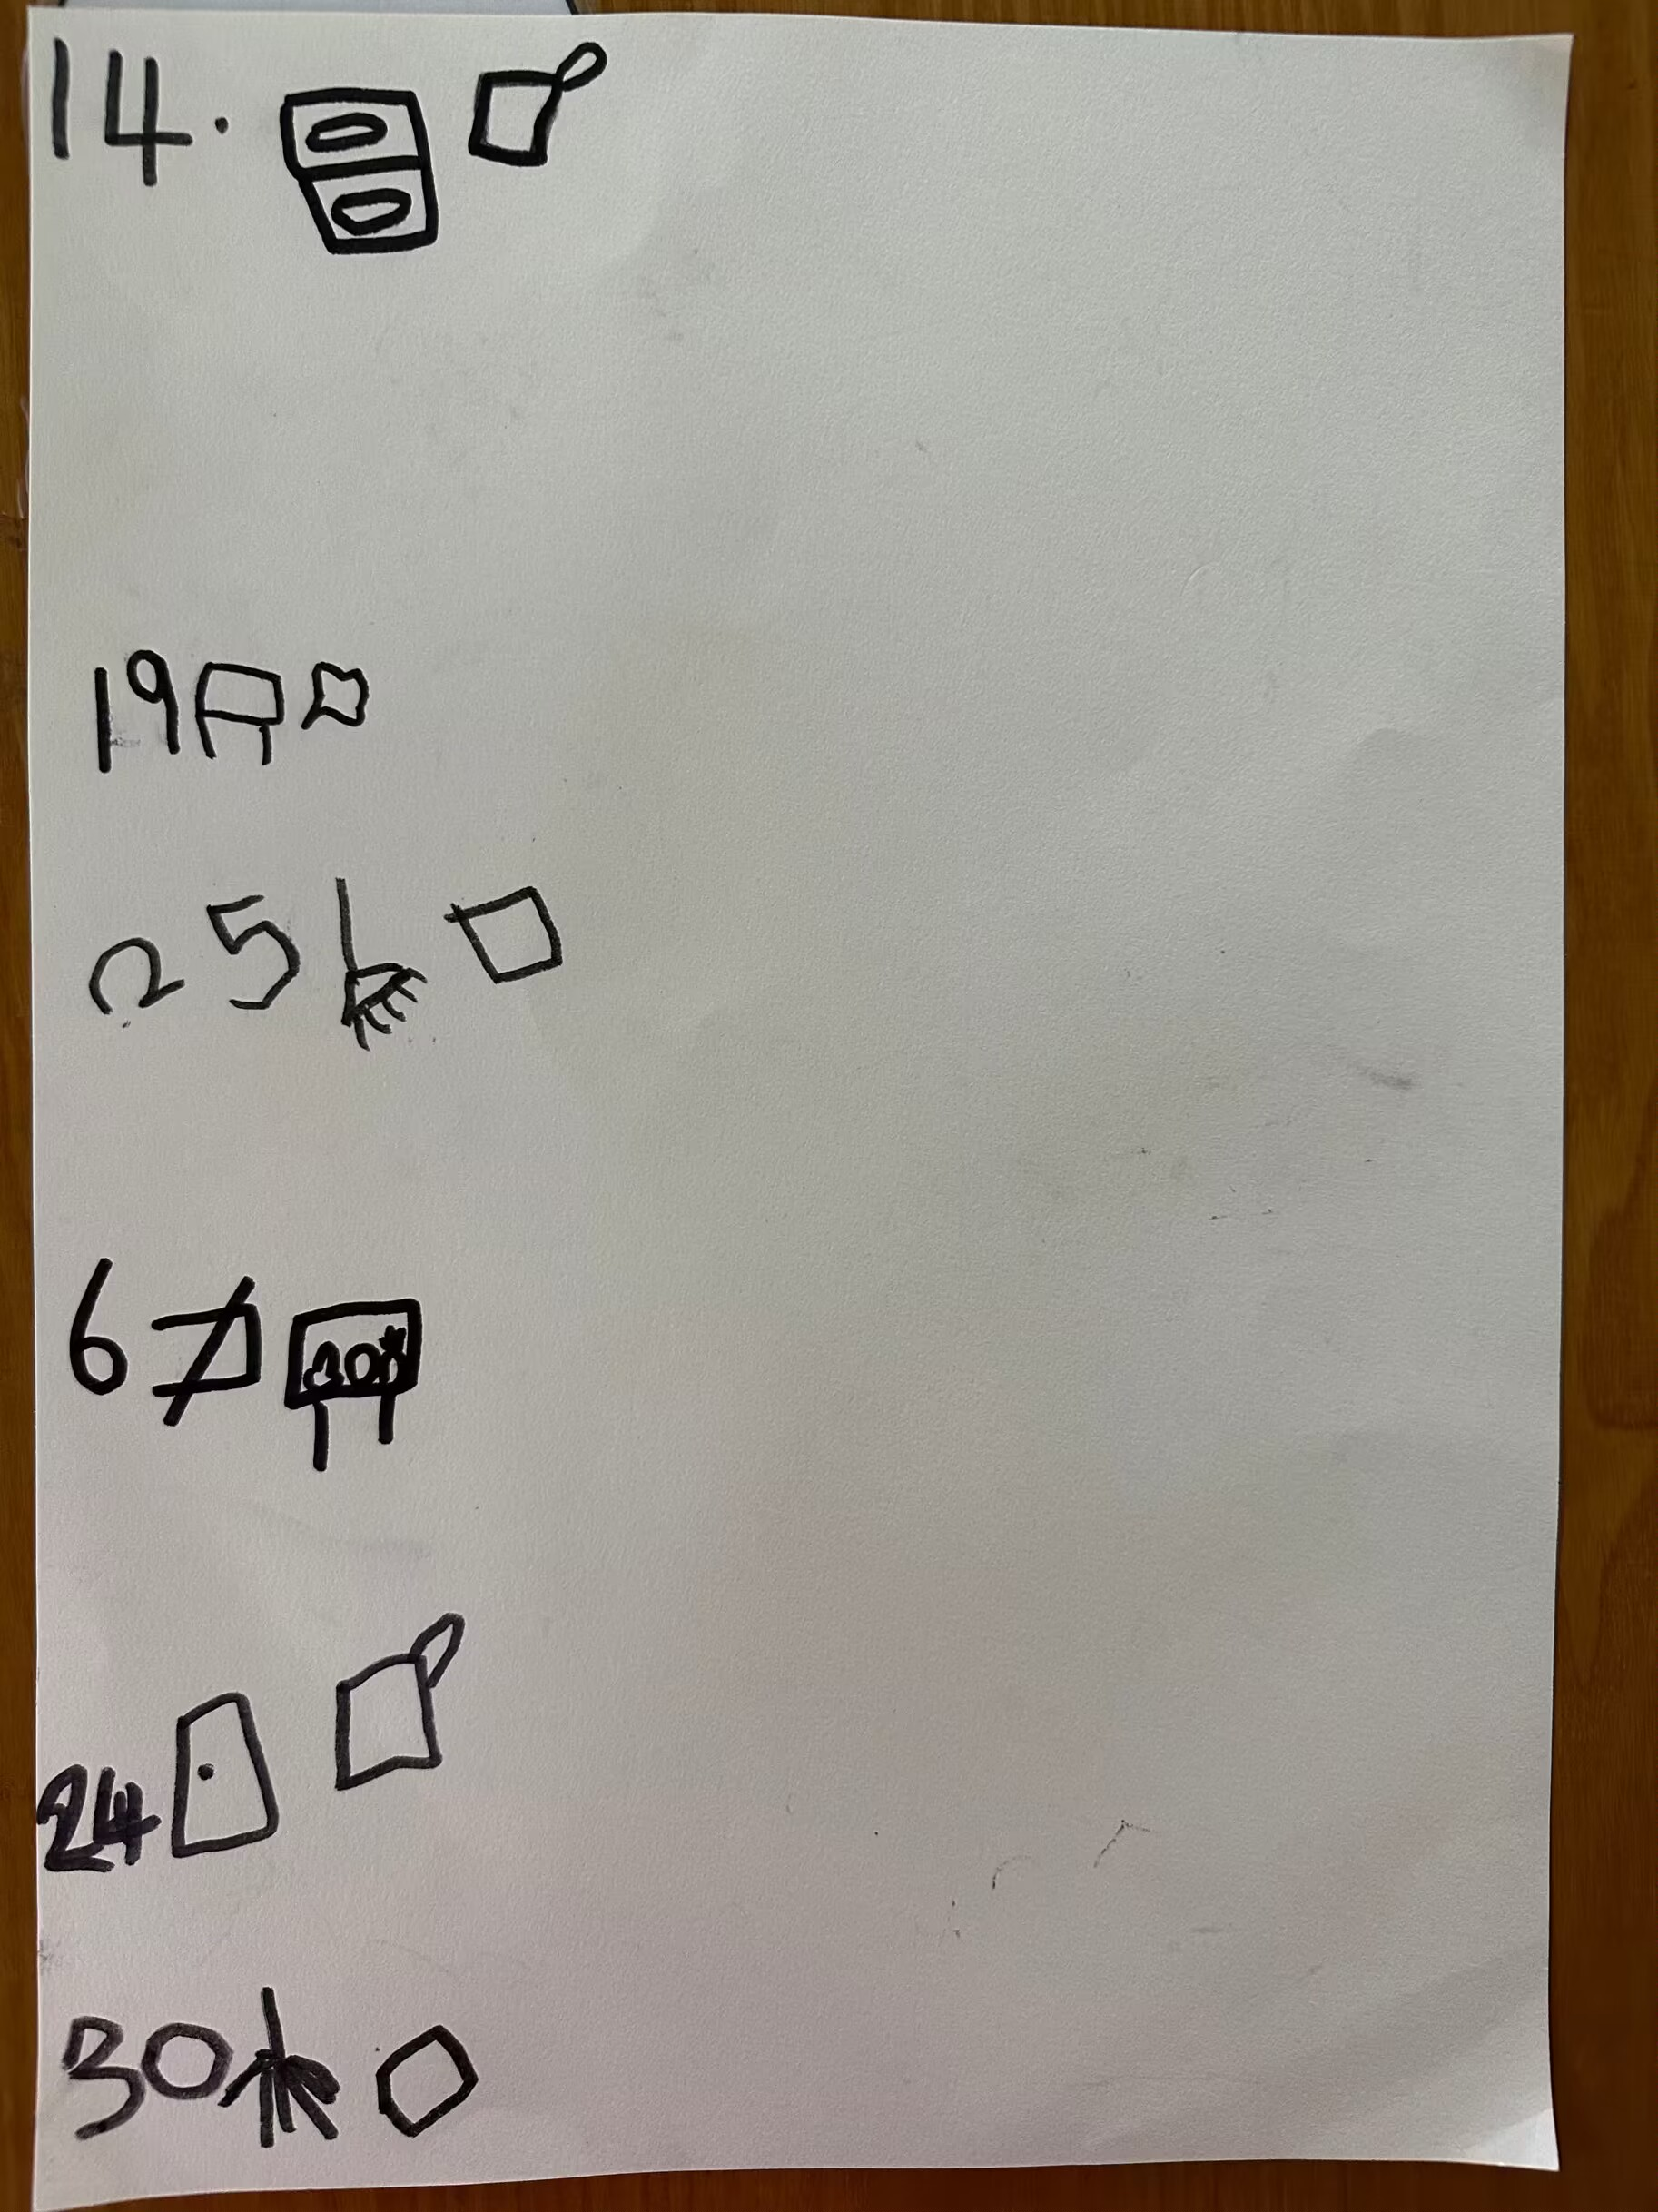 14.
19
25
6
24
30